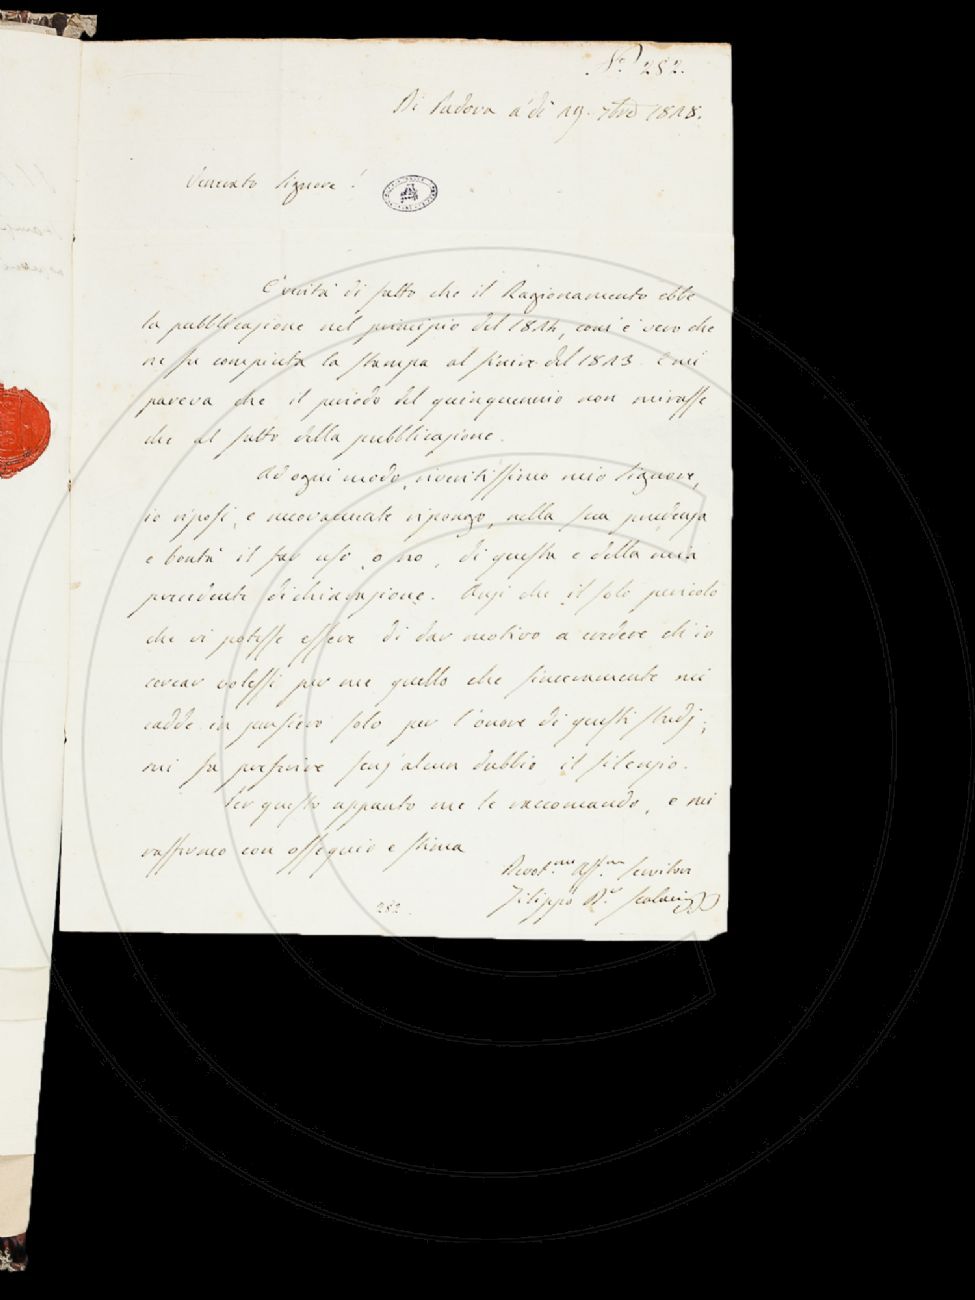 N.° 282.
Di Padova a' dì 19. 7bre 1818.
Venerato Signore!
È verità di fatto che il Ragionamento ebbe
la pubblicazione nel principio del 1814, com'è vero che
ne fu compiuta la stampa al finire del 1813. E mi
pareva che il periodo del quinquennio non mirasse
che al fatto della pubblicazione.
Ad ogni modo, riveritissimo mio Signore,
io riposi, e nuovamente ripongo, nella sua prudenza
e bontà il far uso, o no, di questa e della mia
precedente dichiarazione. Anzi che il solo pericolo
che vi potesse essere di dar motivo a credere ch'io
cercar volessi per me quello che sinceramente mi
cadde in pensiero solo per l'onore di questi studj;
mi fa preferire senz'alcun dubbio il silenzio.
Per questo appunto me le raccomando, e mi
raffermo con ossequio e stima
Devot.mo Aff.mo Servitor
Filippo D.r Scolari
282.